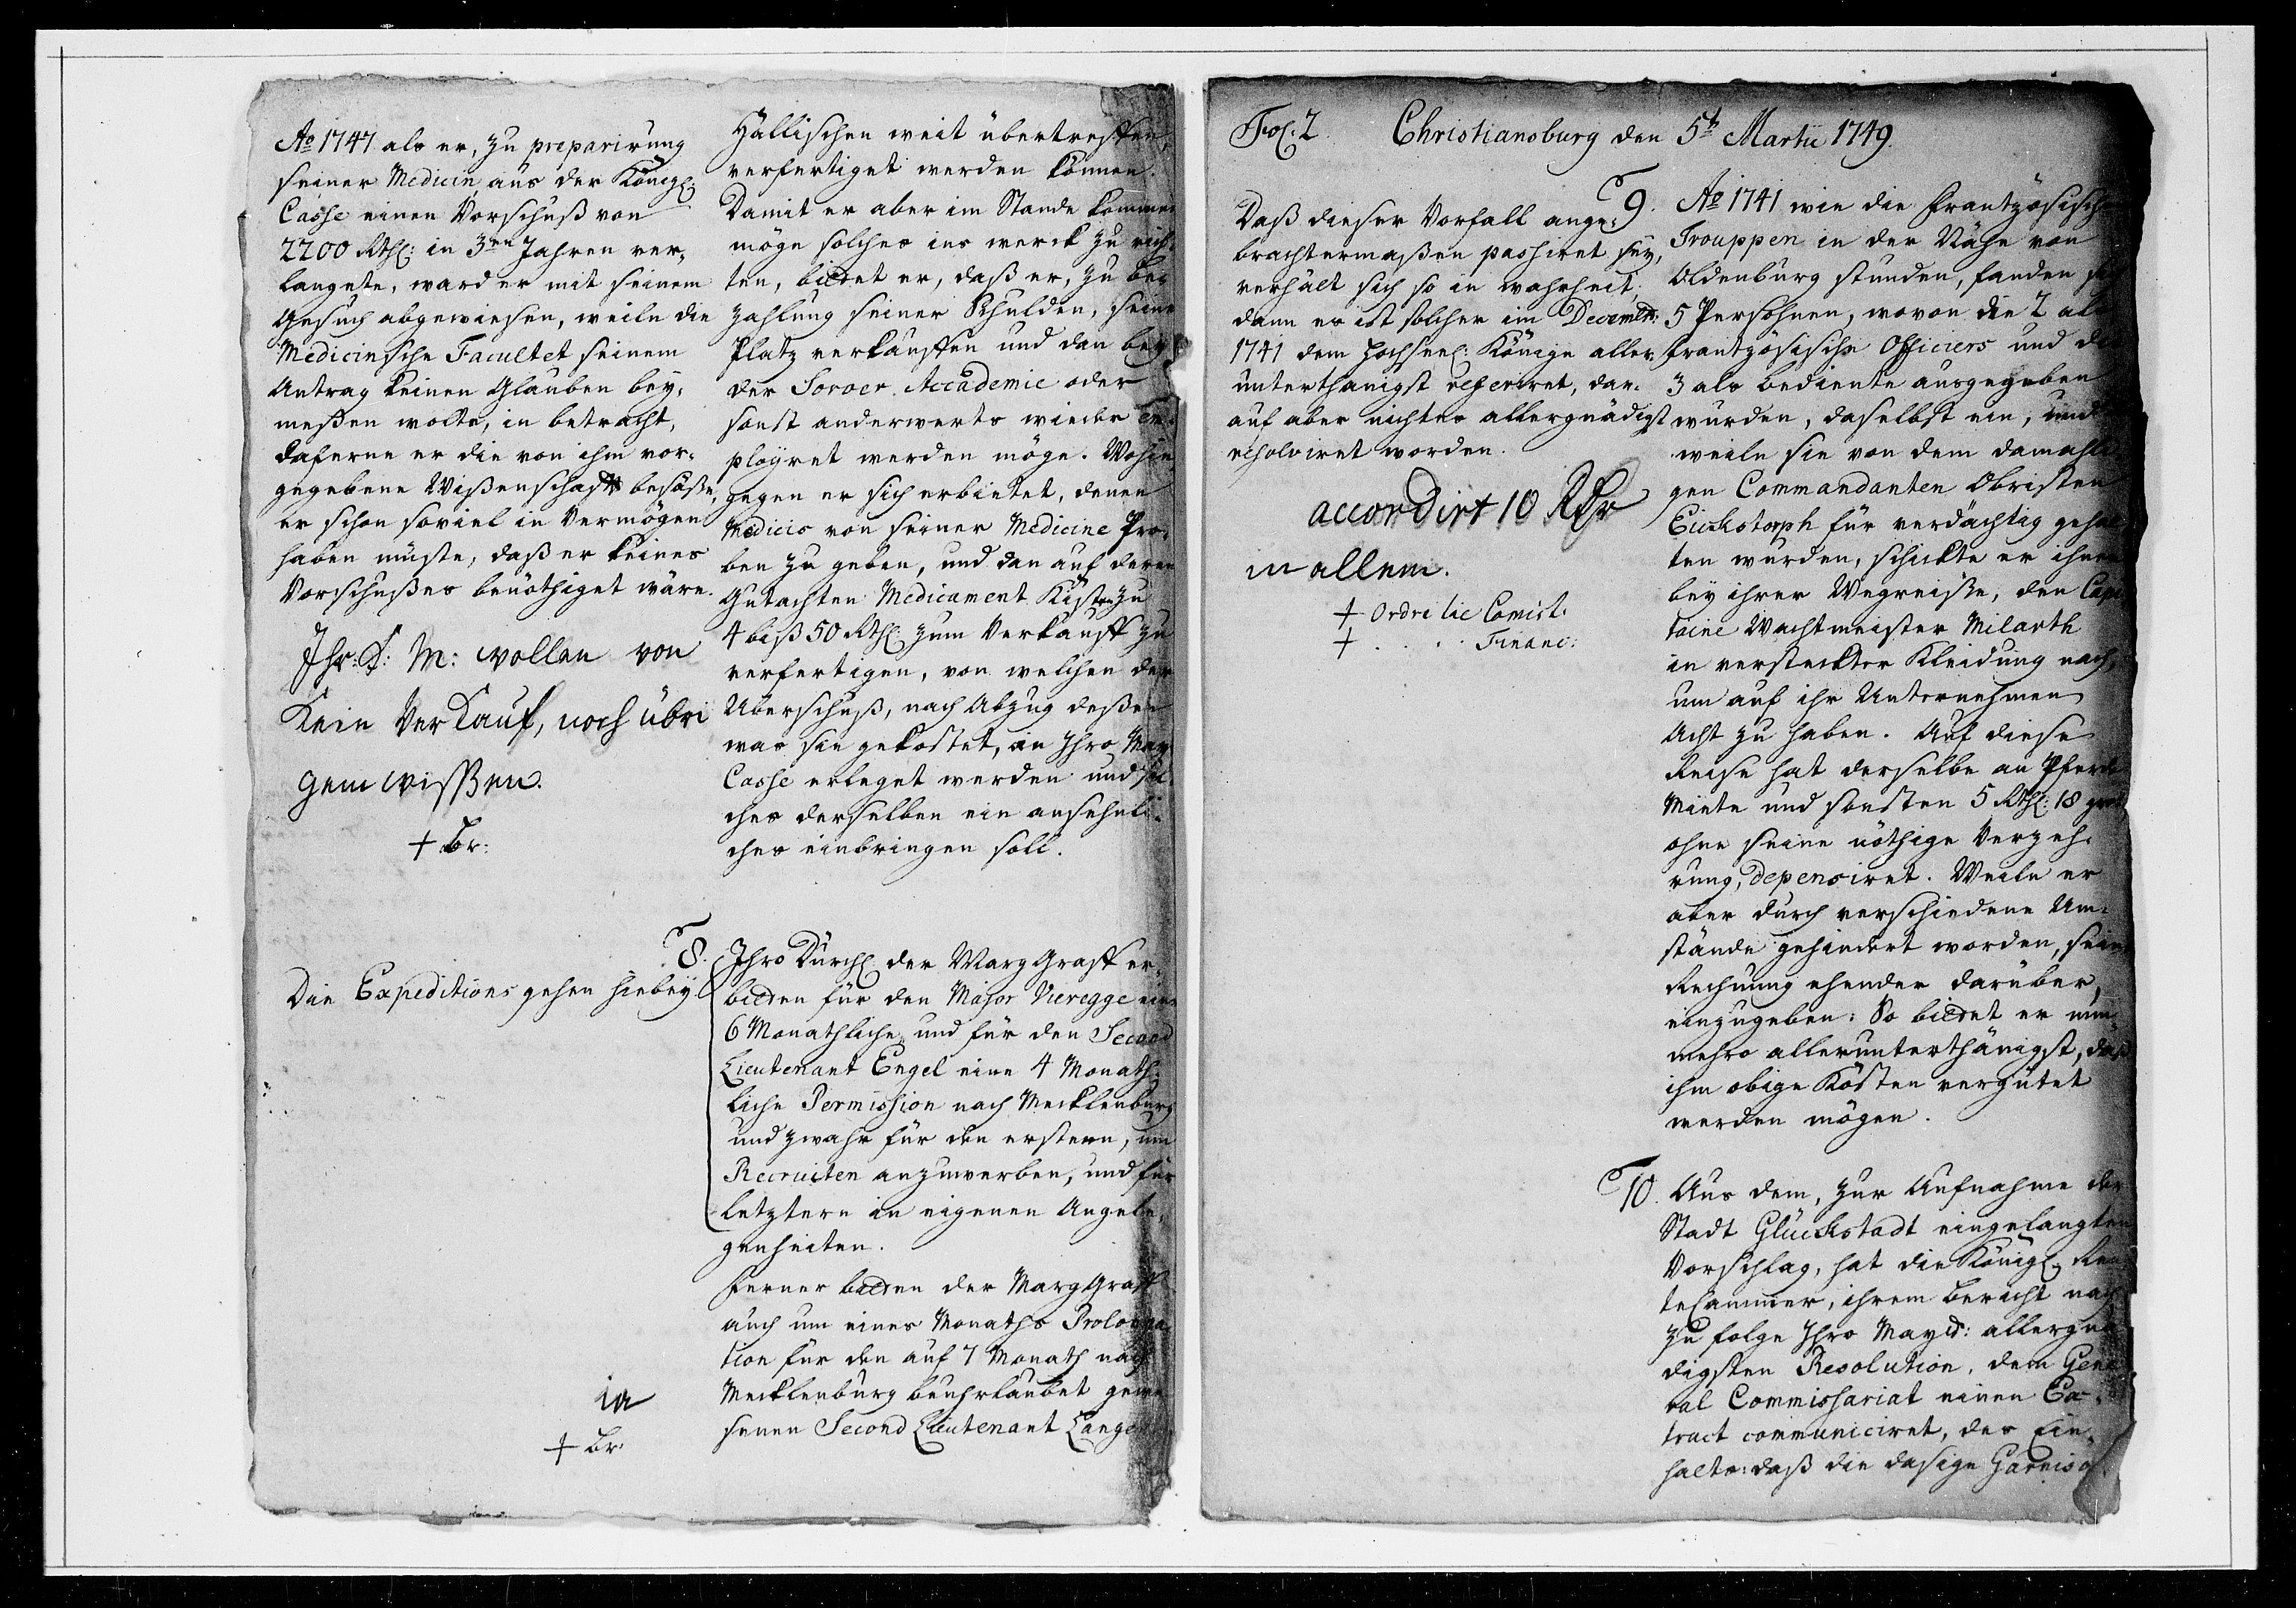 Ao 1747 als er, zu preparirung
seiner Medicin, aus der Königl:
Casse einen Vorschuß von
2200 Rthl: in 3en Jahren ver,
langete, ward er mit seinem
Gesuch abgewiesen, weiln die
Medicinsche Facultet seinem
Antrag keinen Glauben bey,
meßen wolte, in betracht,
daferne er die von ihm vor,
gegebene Wißenschafft besäße,
er schon soviel in Vermögen
haben müste, daß er keines
Vorschußes benöthiget wäre.
Ihr: K: M: wollen von
Kein Verkauf, noch übri
gem wissen.
+ Br:
Die Expeditions gehen hiebey.
ia
+ Br.
Hällischen weit übertreffen,
verfertiget werden können.
Damit er aber im Stande kommen
möge solches ins werck zu rich,
ten, bittet er, daß er, zu be,
zahlung seiner Schulden, seine
Platz verkauffen und dan bey
der Soroer Accademie oder
sonst anderwerts wieder em,
ployret werden möge. Wohin,
gegen er sich erbietet, denen
Medicis von seiner Medicine Pro,
ben zu geben, und dan auf deren
Gutachten Medicament Kisten zu
4 biß 50 Rthl: zum Verkauff zu
verfertigen, von welchen der
Überschuß, nach Abzug deßen
was sie gekostet, in Ihro May
Casse erleget werden und sol
ches derselben ein ansehnli,
ches einbringen soll.
8. Ihro Dürchl: der Marggraff er,
bitten für den Major Vieregge eine
6 Monathliche, und für den Second
Lieutenant Engel eine 4 Monath,
liche Permission nach Mecklenburg
und zwahr für den erstern, um
Recruiten anzuwerben, und für
letztern in eigenen Angele,
genheiten.
Ferner bitten der Marggraff
auch um eines Monaths Prolonga
tion für den auf 7 Monath nach
Mecklenburg beuhrlaubet gewe
senen Second Lieutenant Lange
Fol: 2. Christiansburg den 5t Martii 1749.
Daß dieser Vorfall ange,
brachtermaßen passiret sey,
verhält sich so in wahrheit;
dann es ist solcher im Decembr:
1741 dem Hochseel: Könige aller,
unterthänigst referiret, dar,
auf aber nichtes allergnädigst
resolviret worden.
accordirt 10 Rthr
in allem.
+ Ordre lie Comist.
+ . . . Financ:
9. Ao 1741 wie die Frantzösische
Trouppen in der Nähe von
Oldenburg stunden, fanden sich
5 Persohnen, wovon die 2 als
frantzösische Officiers und die
3 als bediente ausgegeben
wurden, daselbst ein, und
weiln sie von dem damahli
gen Commandanten Obristen
Eickstorph für verdächtig gehal
ten wurden, schickte er ihnen
bey ihrer Wegreise, den Capi
taine Wachtmeister Milarth
in versteckter Kleidung nach,
um auf ihr Unternehmen
Acht zu haben. Auf diese
Reise hat derselbe an Pferde
Miete und sonsten 5 Rthl: 18 gro
ohne seine nöthige Verzeh,
rung, depensiret. Weiln er
aber durch verschiedene Um,
stände gehindert worden, seine
Rechnung ehender darüber,
einzugeben: So bittet er nun
mehro allerunterthänigst, daß
ihm obige Kosten vergütet
werden mögen.
10. Aus dem, zur Aufnahme der
Stadt Glückstadt eingelangten
Vorschlag, hat die Königl: Ren
teCammer, ihrem bericht nach
zu folge Ihro Mayt: allergnä
digsten Resolution, dem Gene
ral Commissariat einen Ex,
tract communiciret, des Ein,
halts: daß die dasige Garniso